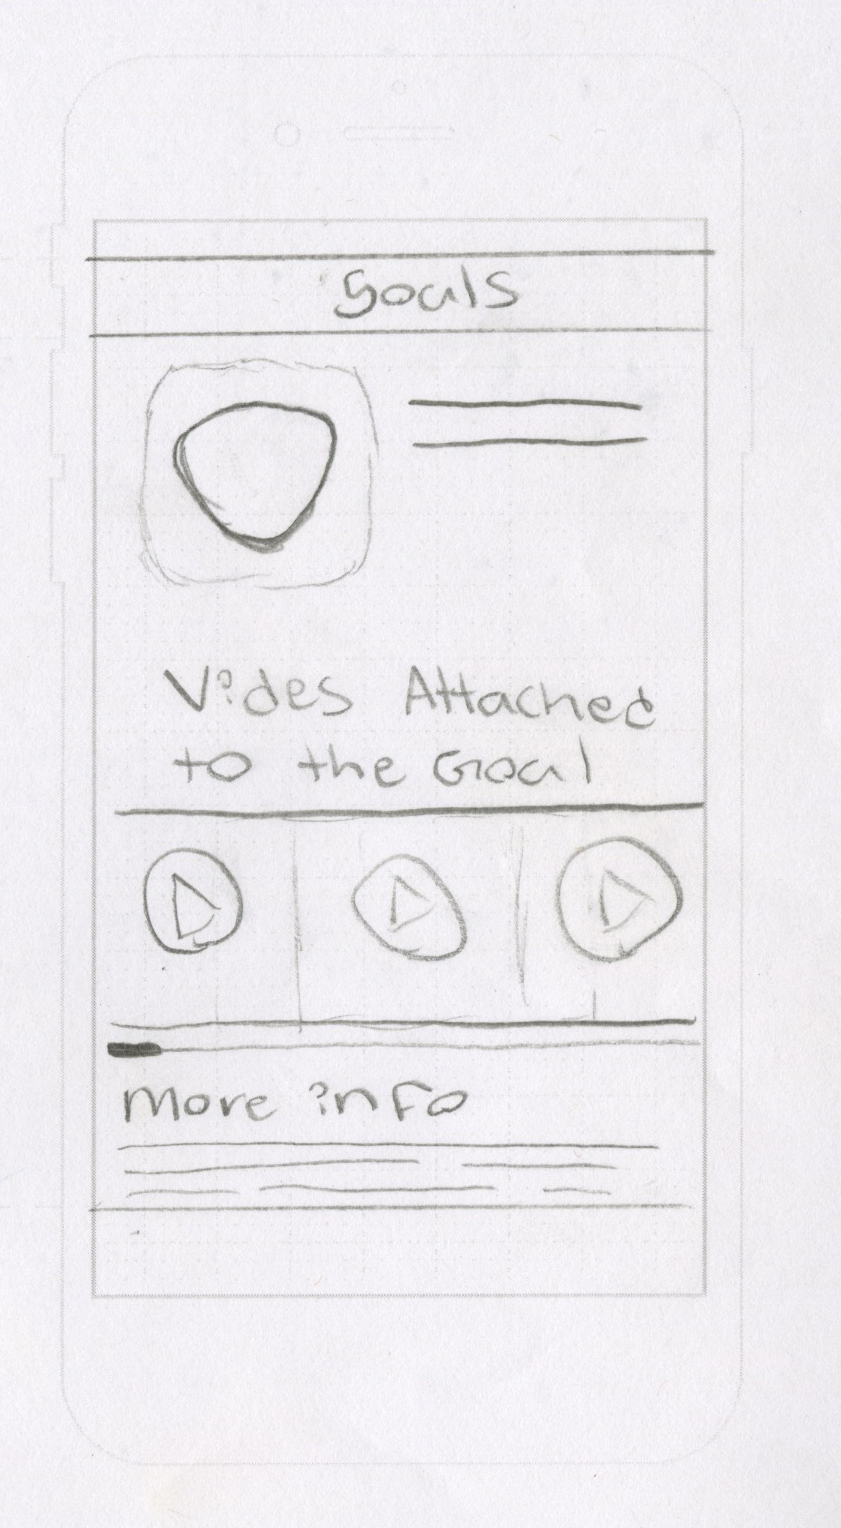 Goals
Vides Attached
to the Goal
More info